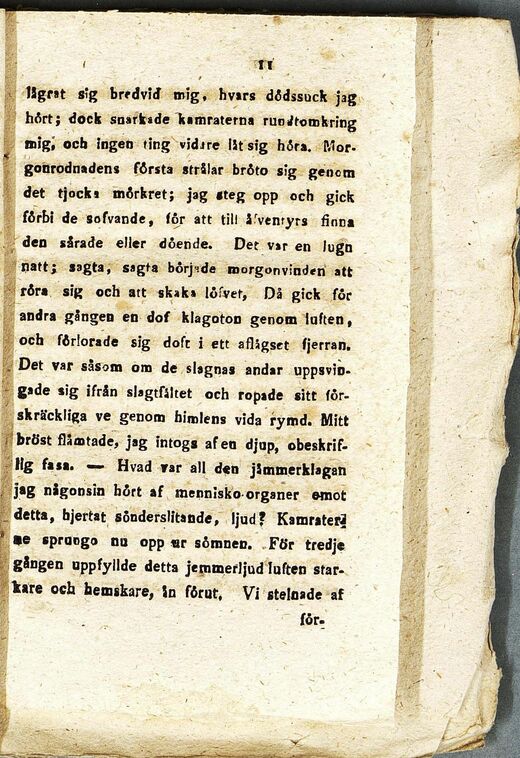 11
lägrat sig bredvid mig, hvars dödssuck jag
hört; dock snarkade kamraterna rundtomkring
mig, och ingen ting vidare lät sig höra. Mor-
gonrodnadens första strålar bröto sig genom
det tjocka mörkret; jag steg opp och gick
förbi de sofvande, för att till äfventyrs finna
den sårade eller döende. Det var en lugn
natt; sagta, sagta började morgonvinden att
röra sig och att skaka löfvet, Då gick för
andra gången en dof klagoton genom luften,
och förlorade sig doft i ett aflägset fjerran.
Det var såsom om de slagnas andar uppsvin-
gade sig ifrån slagtfältet och ropade sitt för-
skräckliga ve genom himlens vida rymd. Mitt
bröst flämtade, jag intogs af en djup, obeskrif-
lig fasa. — Hvad var all den jämmerklagan
jag någonsin hört af mennisko-organer emot
detta, hjertat sönderslitande, ljud? Kamrater-
ne sprungo nu opp ur sömnen. För tredje
gången uppfyllde detta jemmerljud luften star-
kare och hemskare, än förut, Vi stelnade af
för-